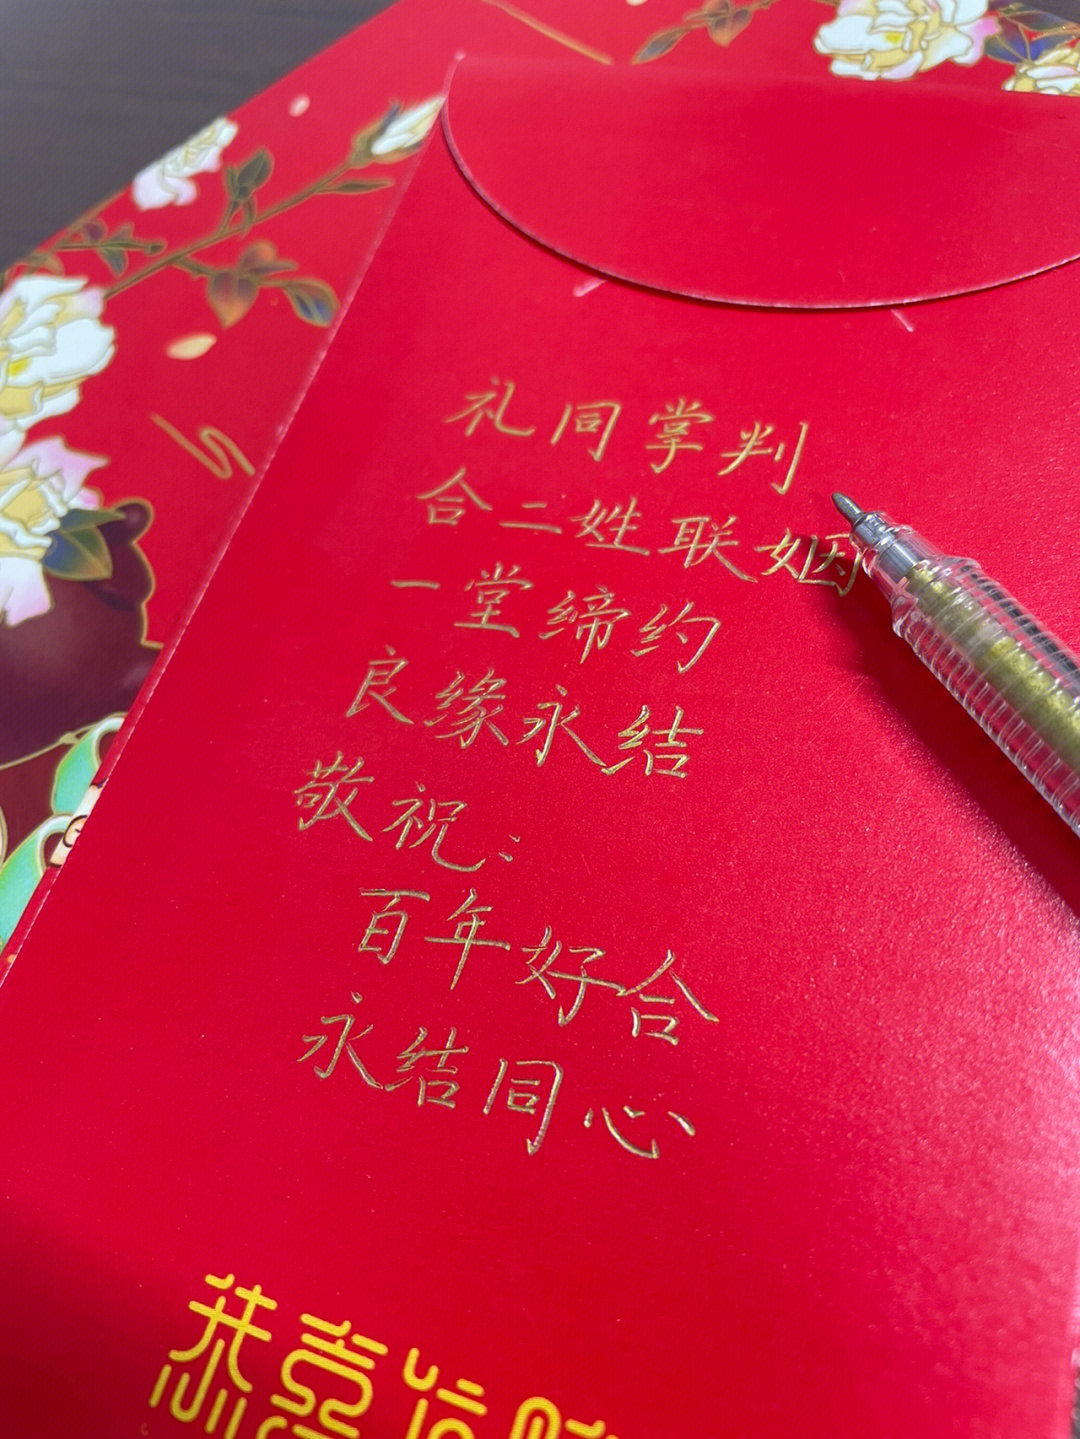 礼同掌判
合二姓联姻
一堂缔约
良缘永结
敬祝:
百年好合
永结同心
恭喜